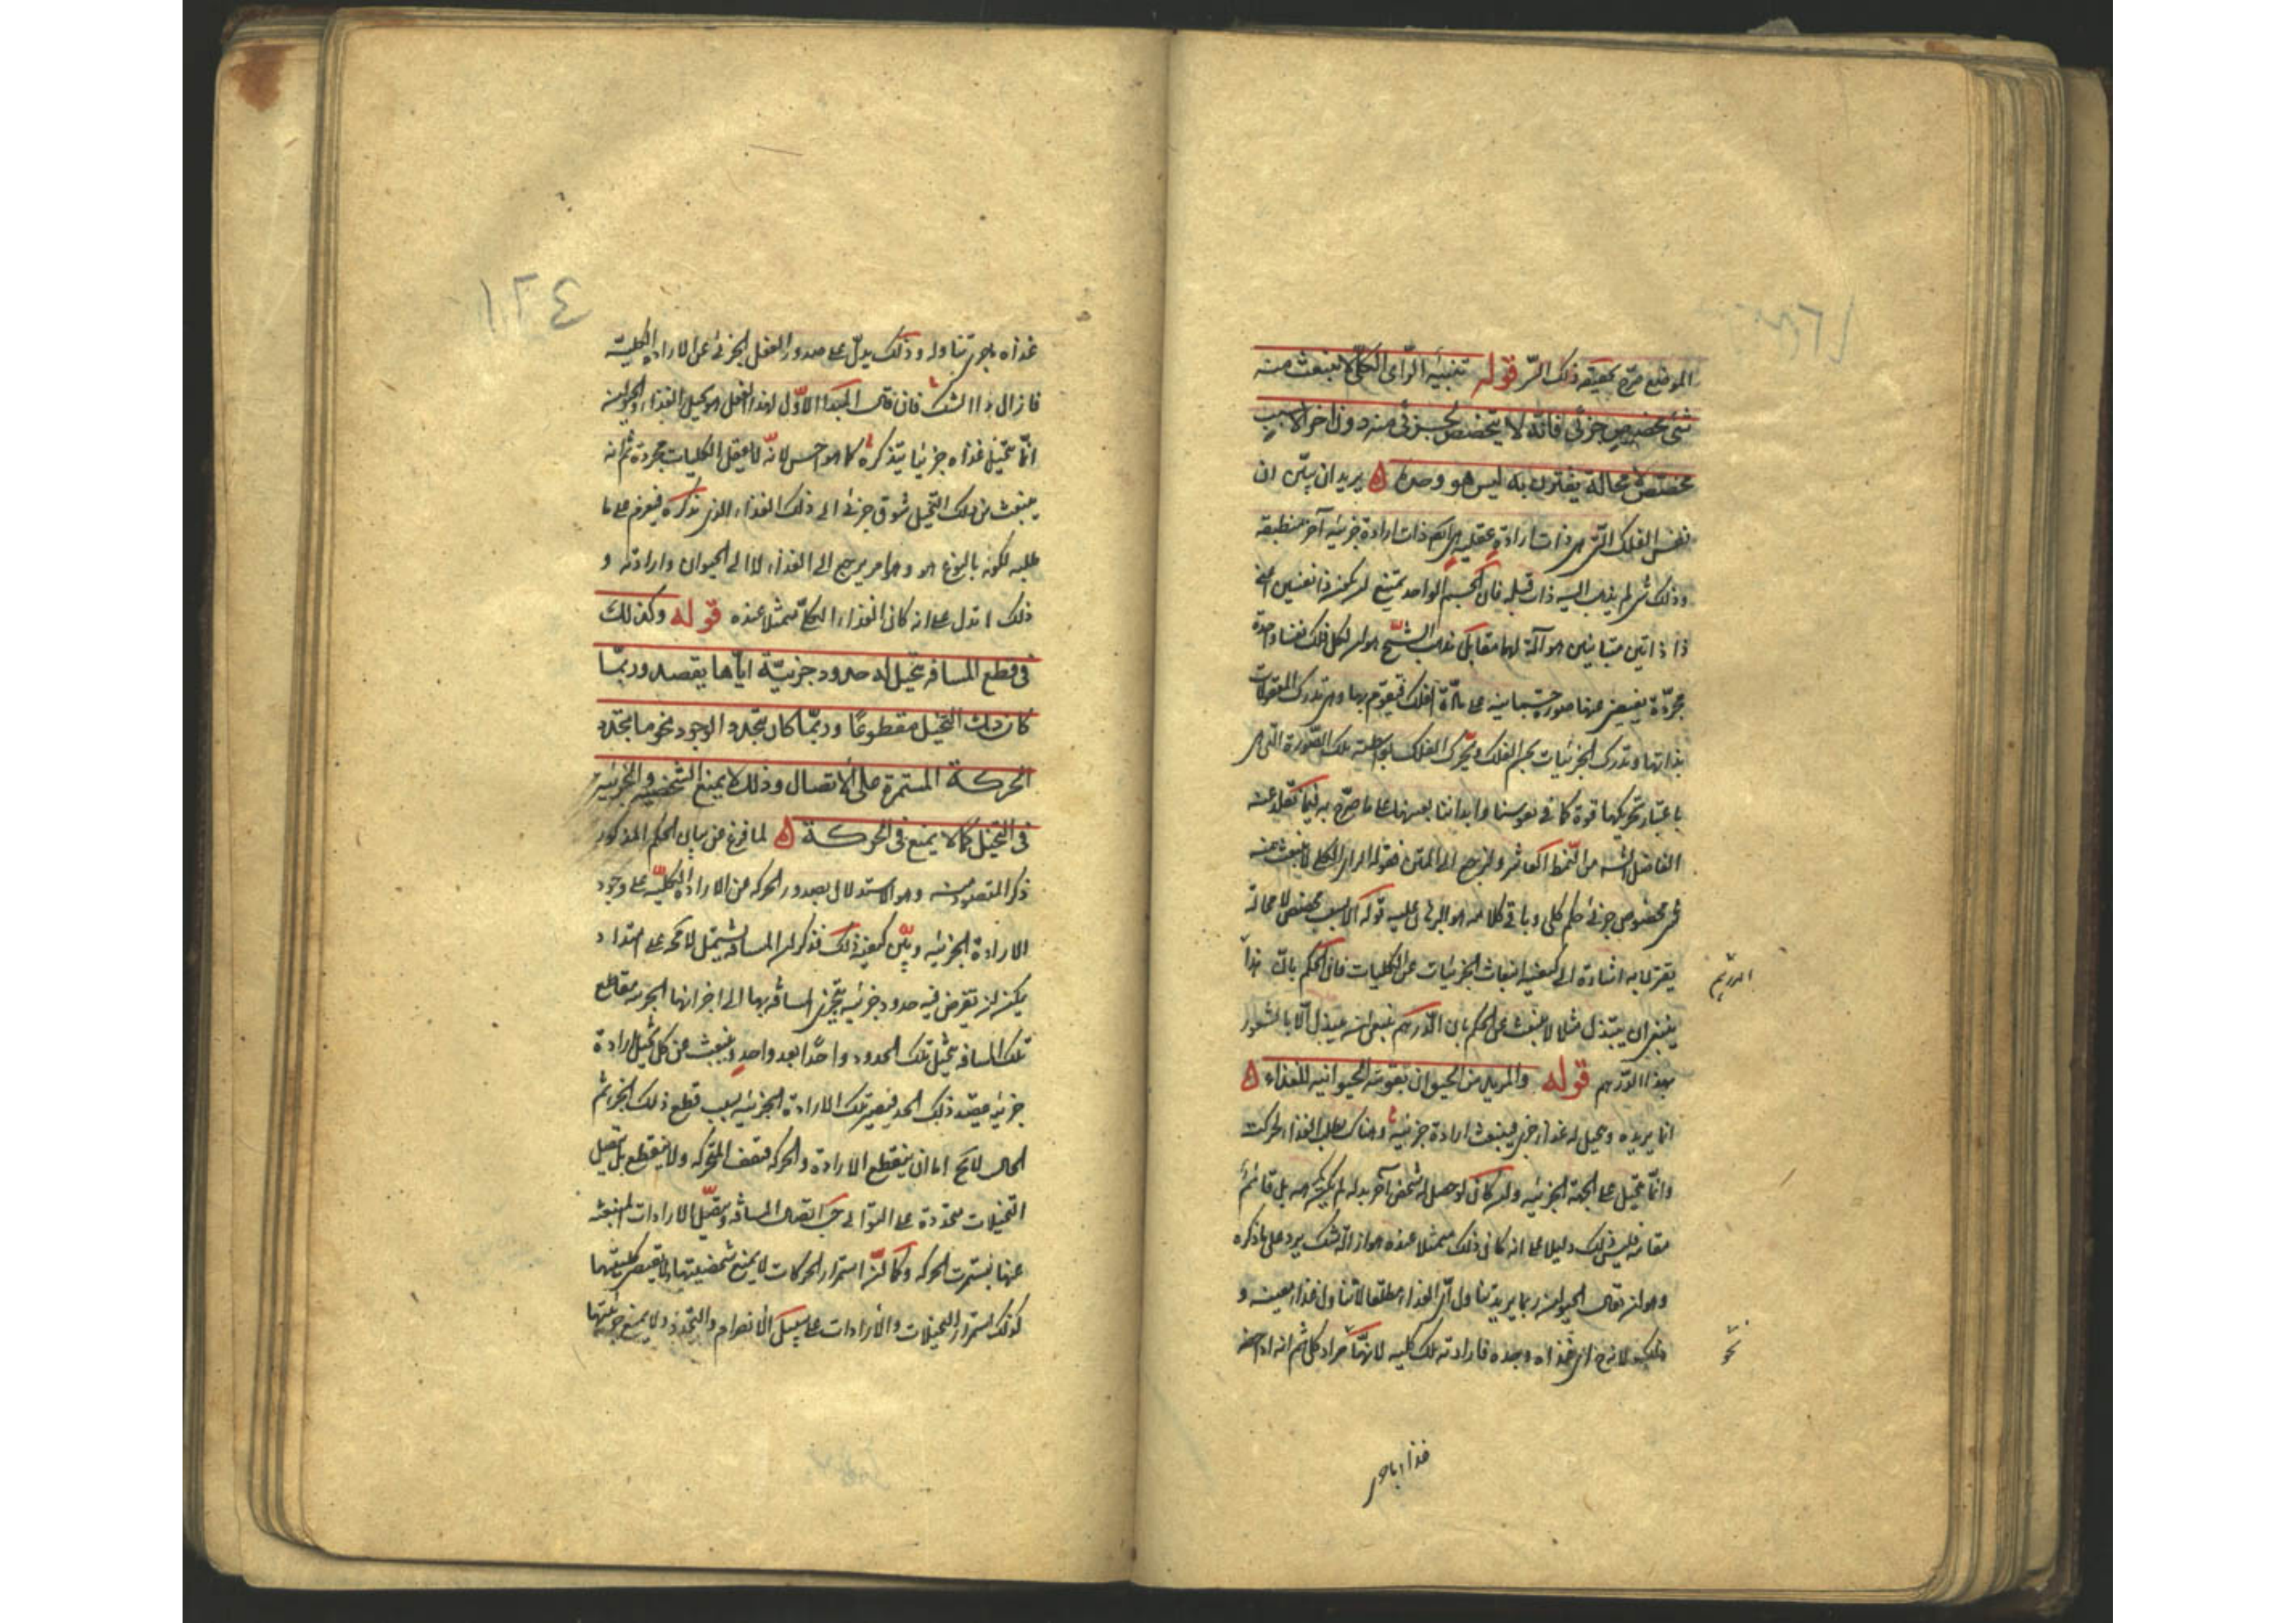 الموضع صرّح بحقيقة ذلك السّر قوله تنبيه الرّاى الكلّى لا ينبعث منه
شئ مخصوص جزئى فانّه لا يتخصّص بجزئى منه دون اخر الا بسبب
مخصّص لا محالة يقترن به ليس هو وحده ه يريد ان يبيّن ان
نفس الفلك التى هى ذات ارادة عقلية هى ايضا ذات ارادة جزئيه
وذلك شئ لم يذهب اليه ذاهب قبله فان الجسم الواحد يمتنع ان يكون ذا نفسين اعنى
ذا ذاتين متباينتين هو آلة لهما معا بل مذهب الشيخ هو ان لكل فلك نفسا واحدة
مجرّدة يفيض عنها صورة جسمانية على مادّة الفلك فيتقوم بها وهى تدرك المعقولات
بذاتها وتدرك الجزئيات بجسم الفلك وتحرّك الفلك بواسطة تلك الصّورة التى هى
باعتبار تحريكها قوة كما فى نفوسنا وابداننا بعينها على ما صرّح به فيما نقله عنه
الفاضل الشه من النّمط العاشر ولنرجع الى المتن فقوله الراى الكلى لا ينبعث عنه
شئ مخصوص جزئى حكم كلى وباقى كلامه هو البرهان عليه قوله الا بسبب مخصص لا محالة
يقترن به اشارة الى كيفية انبعاث الجزئيات عن الكليات فان الحكم بان هذا
الدرهم
ينبغى ان يبذل مثلا لا ينبعث عن الحكم بان الدّرهم ينبغى ان يبذل الّا بالشعور
بهذا الدّرهم قوله والمريد من الحيوان بقوته الحيوانيه للغذاء ه
انما يريده ويتخيل له غذاء جزئى فينبعث ارادة جزئية وهناك يطلب الغذاء بحركات
وانّما يتخيل على الجهة الجزئيه وان كان لو حصل له شخص آخر بدله لم يكرهه بل قام
مقامه فليس ذلك دليلا على انه كان ذلك متمثلا عنده هو ازالة شك يرد على ما ذكره
وهو ان يقال الحيوان ربما يريد تناول الغذاء مطلقا لا تناول غذاء معين و
ذلك لانه اى غذاء وجده فارادته تلك كليه لانها مراد كلى ثم انه اذا
غذاء باحر
١٠٢٤
غذاه ياحر تناوله وذلك يدلّ على صدور الفعل الجزئى عن الارادة الكلية
فازال هذا الشك فان قال المبدأ الاوّل لهذا الفعل هو تخيل الغذاء والحيوان
انّما تخيّل غذاء جزئيا يتذكره كما هو احس لانّه لا يعقل الكليات مجردة ثم انه
ينبعث من ذلك التخيل شوق جزئى الى ذلك الغذاء الذى تذكره فيعزم على ما
طلبه لكونه بالنوع هو وهو امر يرجع الى الغذاء لا الى الحيوان وارادته و
ذلك لا تدل على انه كان الغذاء الكلّى متمثلا عنده قوله وكذلك
فى قطع المسافه يتخيل له حدود جزئيّة ايّاها يقصد وربمّا
كان ذلك التخيّل مقطوعًا وربمّا كان يتجدد الوجود نحو ما يتجدد
الحركة المستمرة على الأتصال وذلك لا يمنع الشخصيه والجزئيه
فى التخيّل كما لا يمنع فى الحركة ه لما فرغ من بيان الحكم المذكور
ذكر المقصود منه وهو الاستدلال بصدور الحركه من الارادة الكليّه على وجود
الارادة الجزئيه وبيّن كيفية ذلك فذكر ان المسافه تشتمل لا محه على امتداد
يمكن ان تفرض فيه حدود جزئيه يتجزى المسافه بها الى اجزائها الجزئيه فقاطع
تلك المسافه يتخيّل تلك الحدود واحدًا بعد واحدٍ وينبعث عن كل تخيّل ارادة
جزئيه بقصد ذلك الحد فيصير تلك الارادة الجزئيه سبب قطع ذلك الجزء ثم
الحال لا يخ اما ان ينقطع الارادة والحركه فيقف المتحرك ولا ينقطع بل يتصل
التخيلات متجددة على التوالى حسب اتصال المسافه ويتصل الارادات المنبعثه
عنها فيستمرت الحركه وكما انّ استمرار الحركات لا يمنع شخصيتها ولا يقتضى كليتها
كذلك استمرار التخيلات والأرادات على سبيل الأنصرام والتجدد ولا يمنع جزئيتها